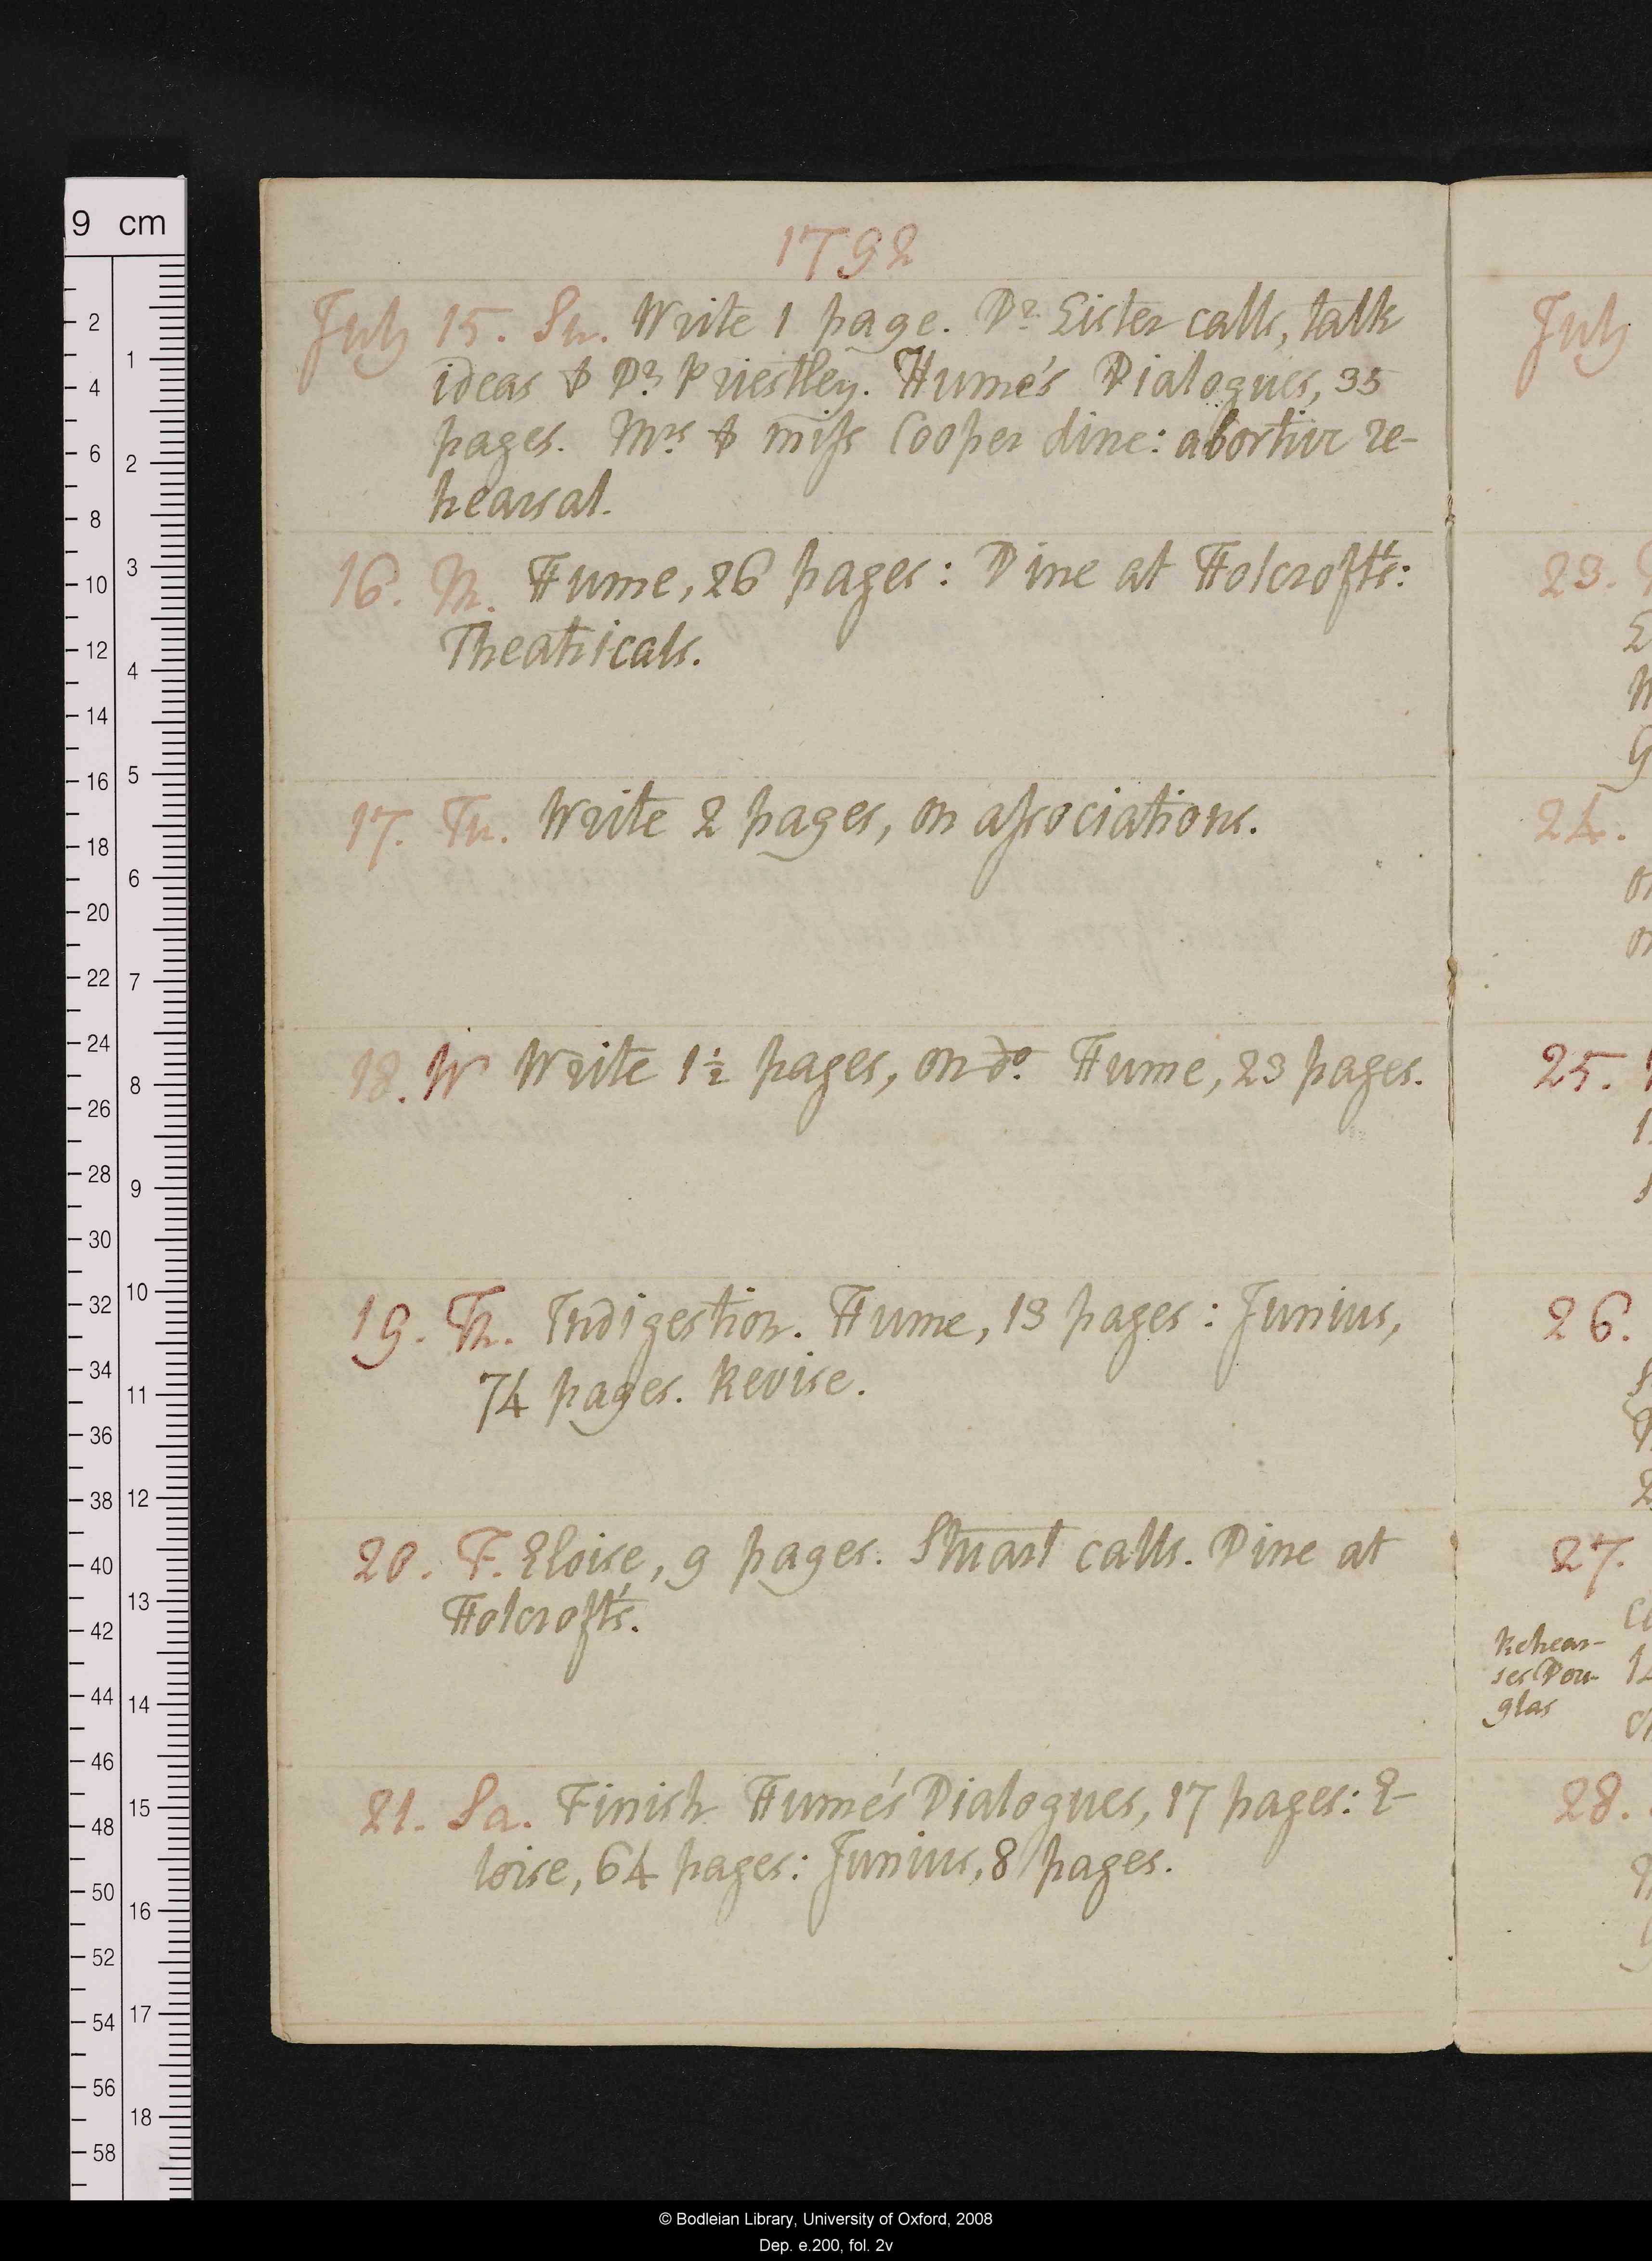 1792
July 15. Su. Write 1 page. Dr. Lister calls, talk
ideas & Dr. Priestley. Hume's Dialogues, 35
pages. Mrs & miss Cooper dine: abortive re-
hearsal.
16. M. Hume, 26 pages: Dine at Holcroft's:
Theatricals.
17. Tu. Write 2 pages, on associations.
18. W Write 1½ pages, on do. Hume, 23 pages.
19. Th. Indigestion. Hume, 13 pages: Junius,
74 pages. Revise.
20. F. Eloise, 9 pages. Stuart calls. Dine at
Holcroft's.
21. Sa. Finish Hume's Dialogues, 17 pages: E-
loise, 64 pages: Junius, 8 pages.
July
23.
24.
25.
26.
27.
Rehear-
ses Dou-
glas
28.
9 cm
2
4
6
8
10
12
14
16
18
20
22
24
26
28
30
32
34
36
38
40
42
44
46
48
50
52
54
56
58
1
2
3
4
5
6
7
8
9
10
11
12
13
14
15
16
17
18
© Bodleian Library, University of Oxford, 2008
Dep. e.200, fol. 2v